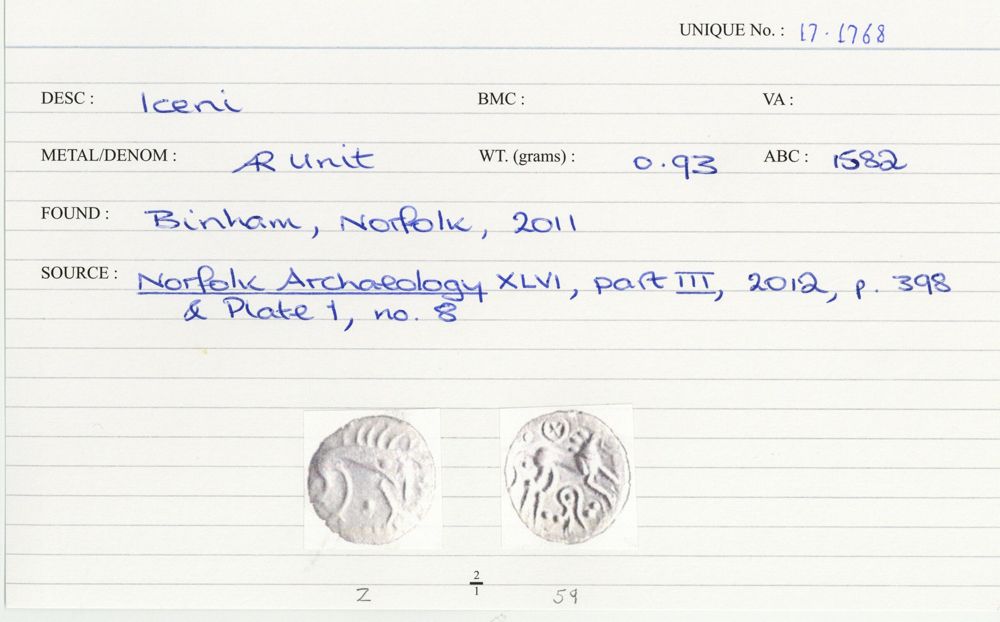 UNIQUE No. : 17.1768
DESC : Iceni BMC : VA :
METAL/DENOM : AR Unit WT. (grams) : 0.93 ABC : 1582
FOUND : Binham, Norfolk, 2011
SOURCE : Norfolk Archaeology XLVI, part III, 2012, p. 398
& Plate 1, no. 8
2
1
Z 59